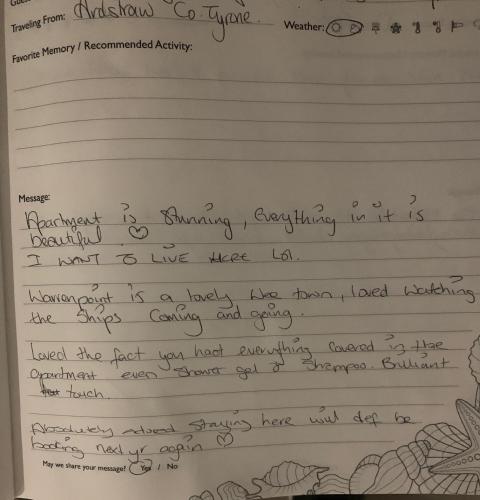 Traveling From: Ardstraw Co. Tyrone.
Weather:
Favorite Memory / Recommended Activity:
Message:
Apartment is stunning, everything in it is
beautiful. ♡
I WANT TO LIVE HERE LOL.
Warrenpoint is a lovely wee town, loved watching
the ships coming and going.
Loved the fact you had everything covered in the
apartment even shower gel & shampoo. Brilliant
touch.
Absolutely adored staying here will def be
booking next yr again ♡
May we share your message? Yes / No